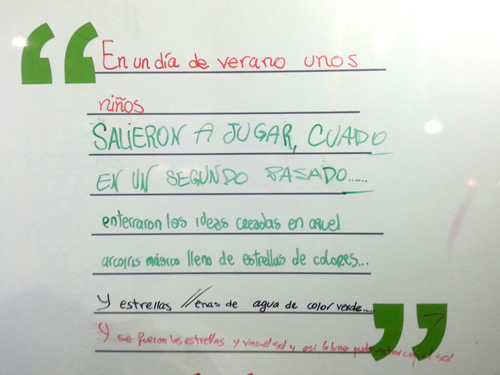 En un día de verano unos
niños
SALIERON A JUGAR, CUADO
EN UN SEGUNDO PASADO......
enterraron las ideas creadas en aquel
arcoiris mágico lleno de estrellas de colores...
Y estrellas llenas de agua de color verde....
Y se fueron las estrellas y vino el sol y asi la luna pudo estar con el sol